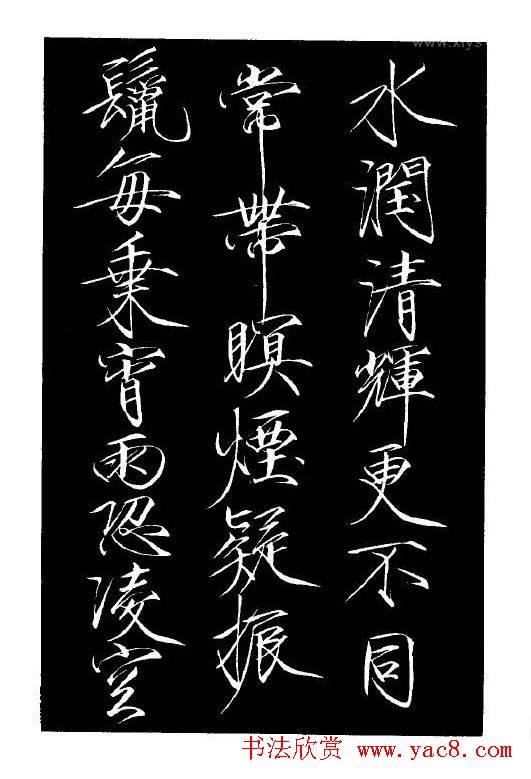 水潤清輝更不同
常帶暝煙疑振
鬣每乗宵雨恐凌空
书法欣赏 www.yac8.com